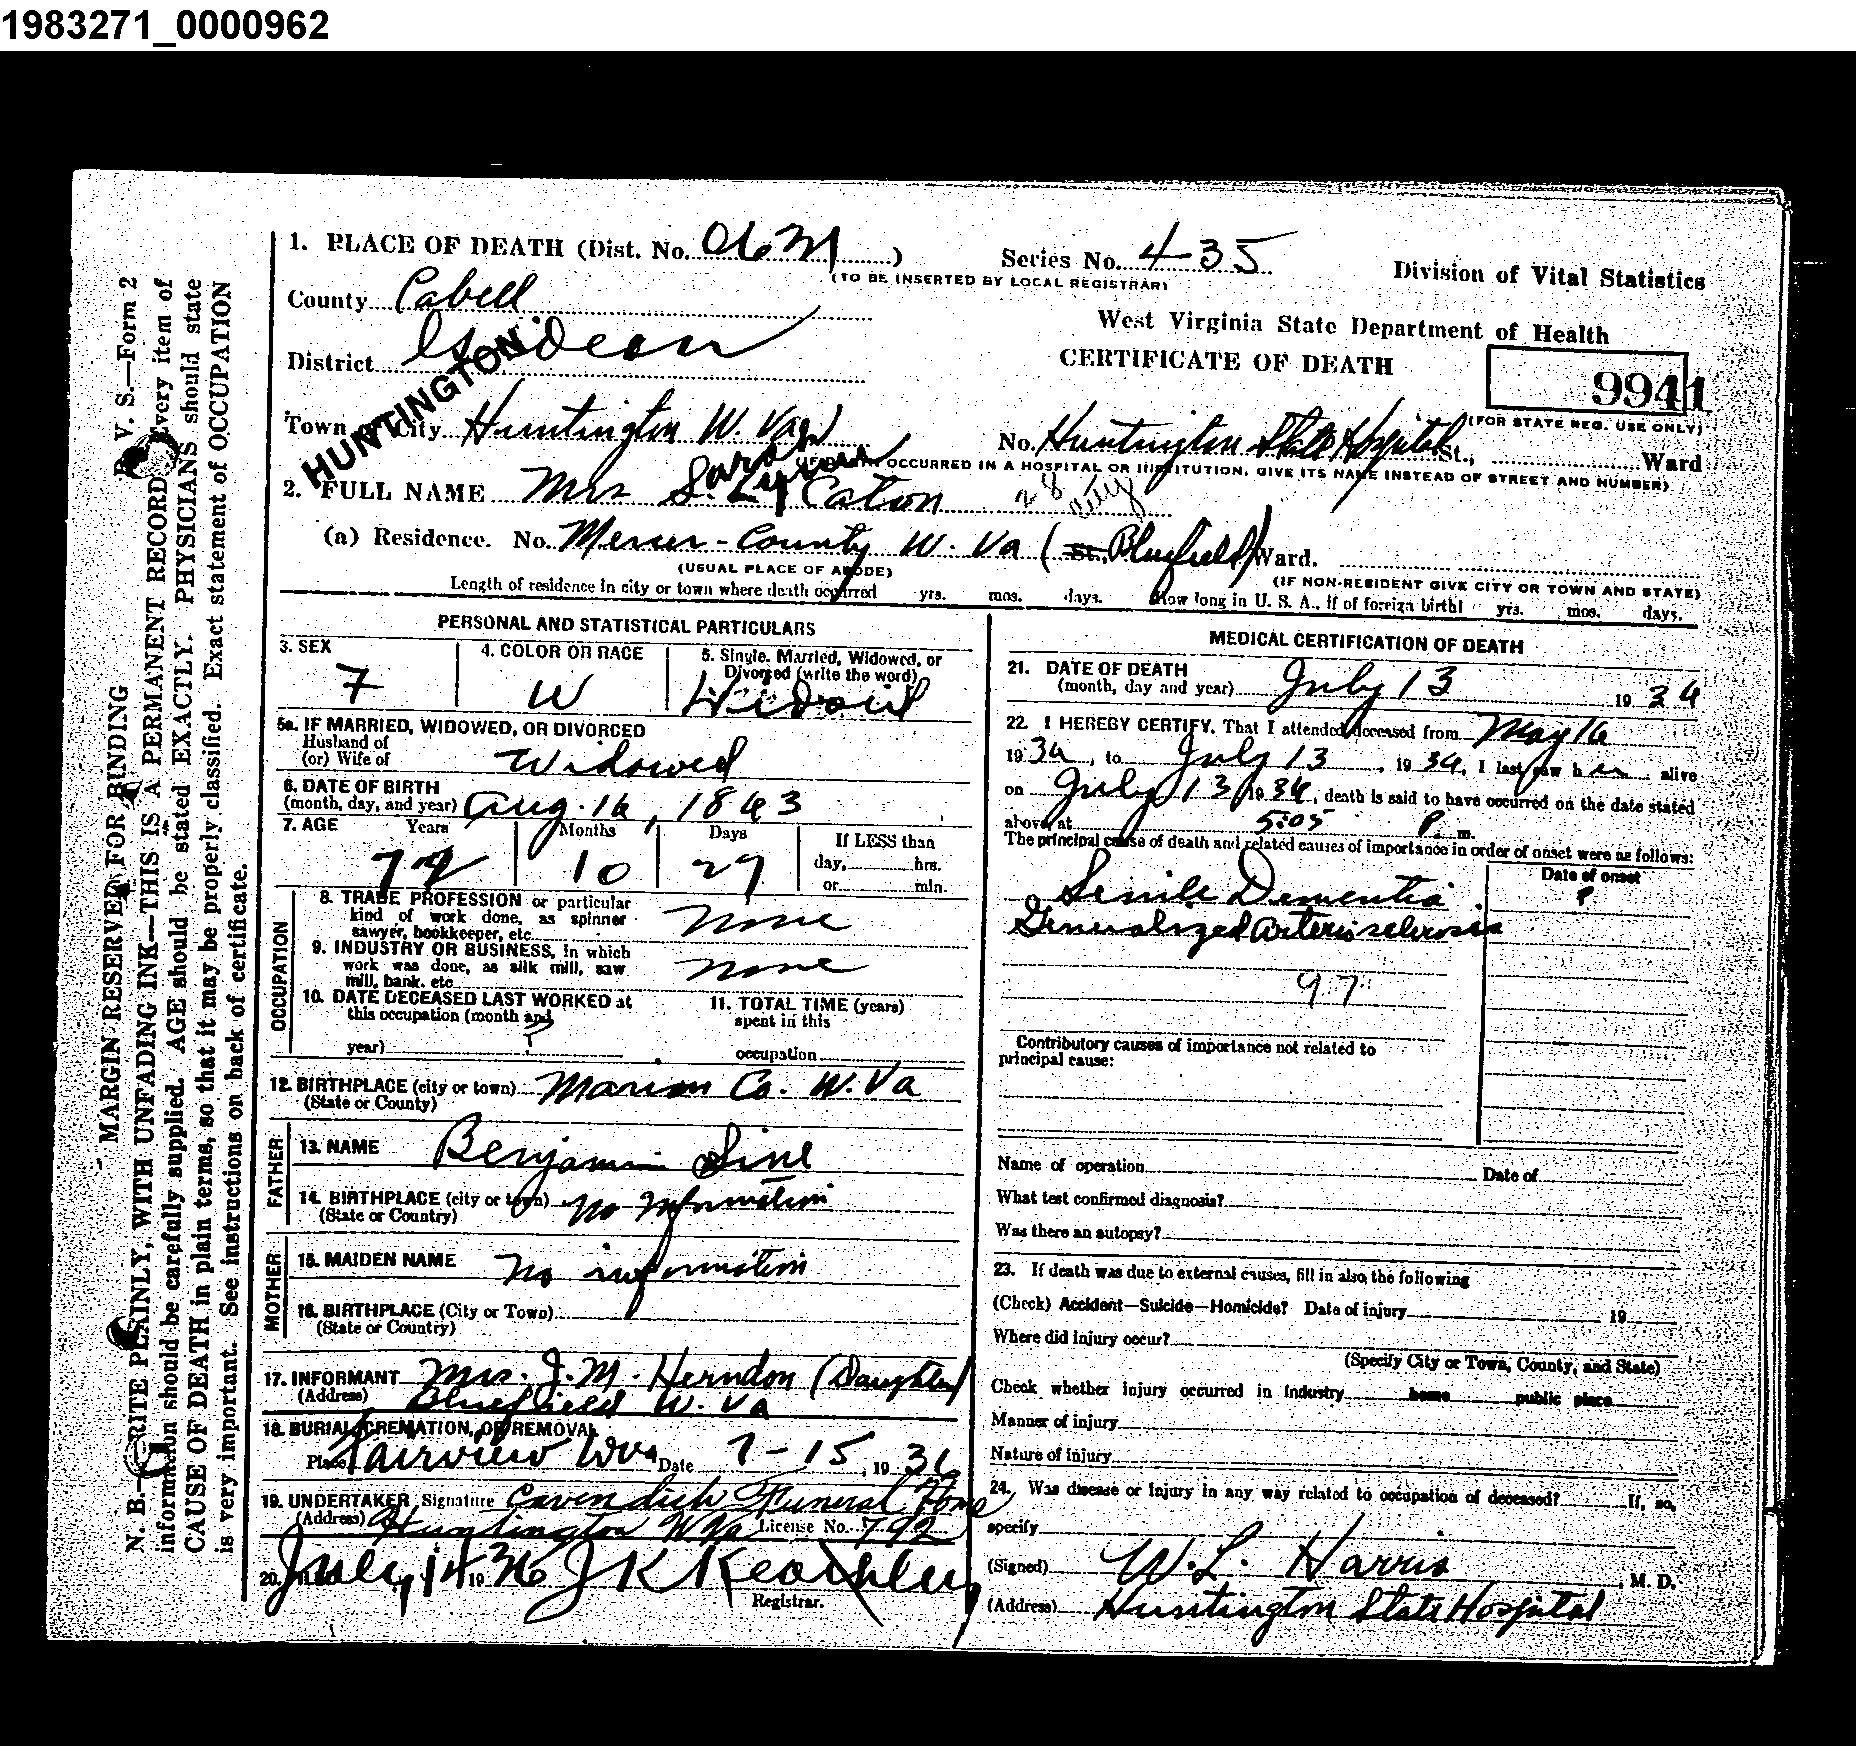 1983271_0000962
1. PLACE OF DEATH (Dist. No. ) Series No. 435 Division of Vital Statistics
(TO BE INSERTED BY LOCAL REGISTRAR)
County Cabell
West Virginia State Department of Health
District Gideon
CERTIFICATE OF DEATH 9941
HUNTINGTON
Town or City Huntington W. Va No. Huntington State Hospital St., Ward
(FOR STATE REG. USE ONLY)
(IF DEATH OCCURRED IN A HOSPITAL OR INSTITUTION, GIVE ITS NAME INSTEAD OF STREET AND NUMBER)
Sarah
2. FULL NAME Mrs S. Caton 28
(a) Residence. No. Mercer - County W. Va ( St., Bluefield) Ward.
(USUAL PLACE OF ABODE) (IF NON-RESIDENT GIVE CITY OR TOWN AND STATE)
Length of residence in city or town where death occurred yrs. mos. days. How long in U. S. A., if of foreign birth! yrs. mos. days.
PERSONAL AND STATISTICAL PARTICULARS
3. SEX 4. COLOR OR RACE 5. Single, Married, Widowed, or
Divorced (write the word)
F W Widowed
5a. IF MARRIED, WIDOWED, OR DIVORCED
Husband of
(or) Wife of Widowed
6. DATE OF BIRTH
(month, day, and year) Aug. 16, 1863
7. AGE Years Months Days If LESS than
72 10 27 day, hrs.
or min.
OCCUPATION
8. TRADE PROFESSION or particular
kind of work done, as spinner none
sawyer, bookkeeper, etc.
9. INDUSTRY OR BUSINESS, in which
work was done, as silk mill, saw none
mill, bank, etc
10. DATE DECEASED LAST WORKED at 11. TOTAL TIME (years)
this occupation (month and spent in this
year) ? occupation
12. BIRTHPLACE (city or town) Marion Co. W. Va
(State or County)
FATHER
13. NAME Benjamin Sine
14. BIRTHPLACE (city or town) No Information
(State or Country)
MOTHER
15. MAIDEN NAME No information
16. BIRTHPLACE (City or Town)
(State or Country)
17. INFORMANT Mrs. J. M. Herndon (Daughter)
(Address) Bluefield W. Va
18. BURIAL, CREMATION, OR REMOVAL
Place Fairview W Va Date 7-15, 1936
19. UNDERTAKER Signature Cavendish Funeral Home
(Address) Huntington W Va License No. 792
20. July 14 1936 J K Keathley
Registrar.
MEDICAL CERTIFICATION OF DEATH
21. DATE OF DEATH
(month, day and year) July 13 1936
22. I HEREBY CERTIFY, That I attended deceased from May 16
1936, to July 13, 1936, I last saw her alive
on July 13 1936, death is said to have occurred on the date stated
above, at 5:05 P. m.
The principal cause of death and related causes of importance in order of onset were as follows:
Date of onset
Senile Dementia ?
Generalized Arteriosclerosis
97
Contributory causes of importance not related to
principal cause:
Name of operation Date of
What test confirmed diagnosis?
Was there an autopsy?
23. If death was due to external causes, fill in also, the following
(Check) Accident—Suicide—Homicide? Date of injury 19
Where did injury occur?
(Specify City or Town, County, and State)
Check whether injury occurred in industry home public place
Manner of injury
Nature of injury
24. Was disease or injury in any way related to occupation of deceased? If, so,
specify
(Signed) W. L. Harris, M. D.
(Address) Huntington State Hospital
V. S.—Form 2
MARGIN RESERVED FOR BINDING
N. B.—WRITE PLAINLY, WITH UNFADING INK—THIS IS A PERMANENT RECORD. Every item of
information should be carefully supplied. AGE should be stated EXACTLY. PHYSICIANS should state
CAUSE OF DEATH in plain terms, so that it may be properly classified. Exact statement of OCCUPATION
is very important. See instructions on back of certificate.